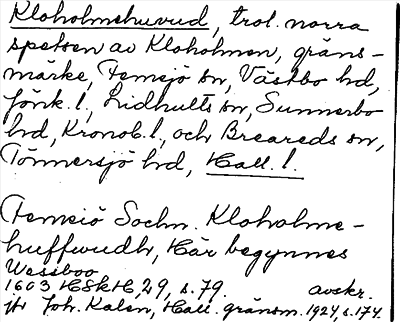 Kloholmshuvud, trol. norra
spetsen av Kloholmen, gräns-
märke, Femsjö sn, Västbo hd,
Jönk. l., Lidhults sn, Sunnerbo
hd, Kronob. l., och Breareds sn,
Tönnersjö hd, Hall. l.
Femsiö Sochn. Kloholme-
huffwudh, Här begynnes
Wessboo
1603 HSkH, 29, s. 79. avskr.
jfr Joh. Kalén, Hall. gränsm. 1924, s. 174.